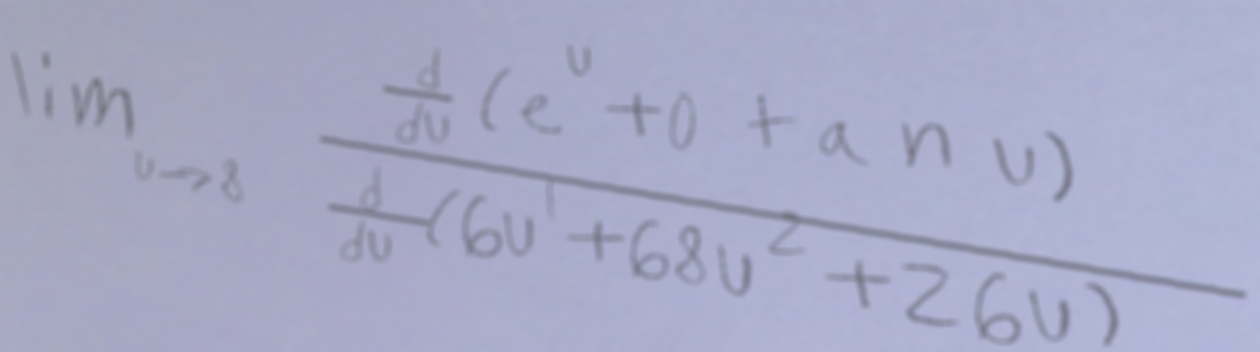 \lim_{u \to 8} \frac{\frac{d}{du}(e^u + 0 + a n u)}{\frac{d}{du}(6u^1 + 68u^2 + 26u)}